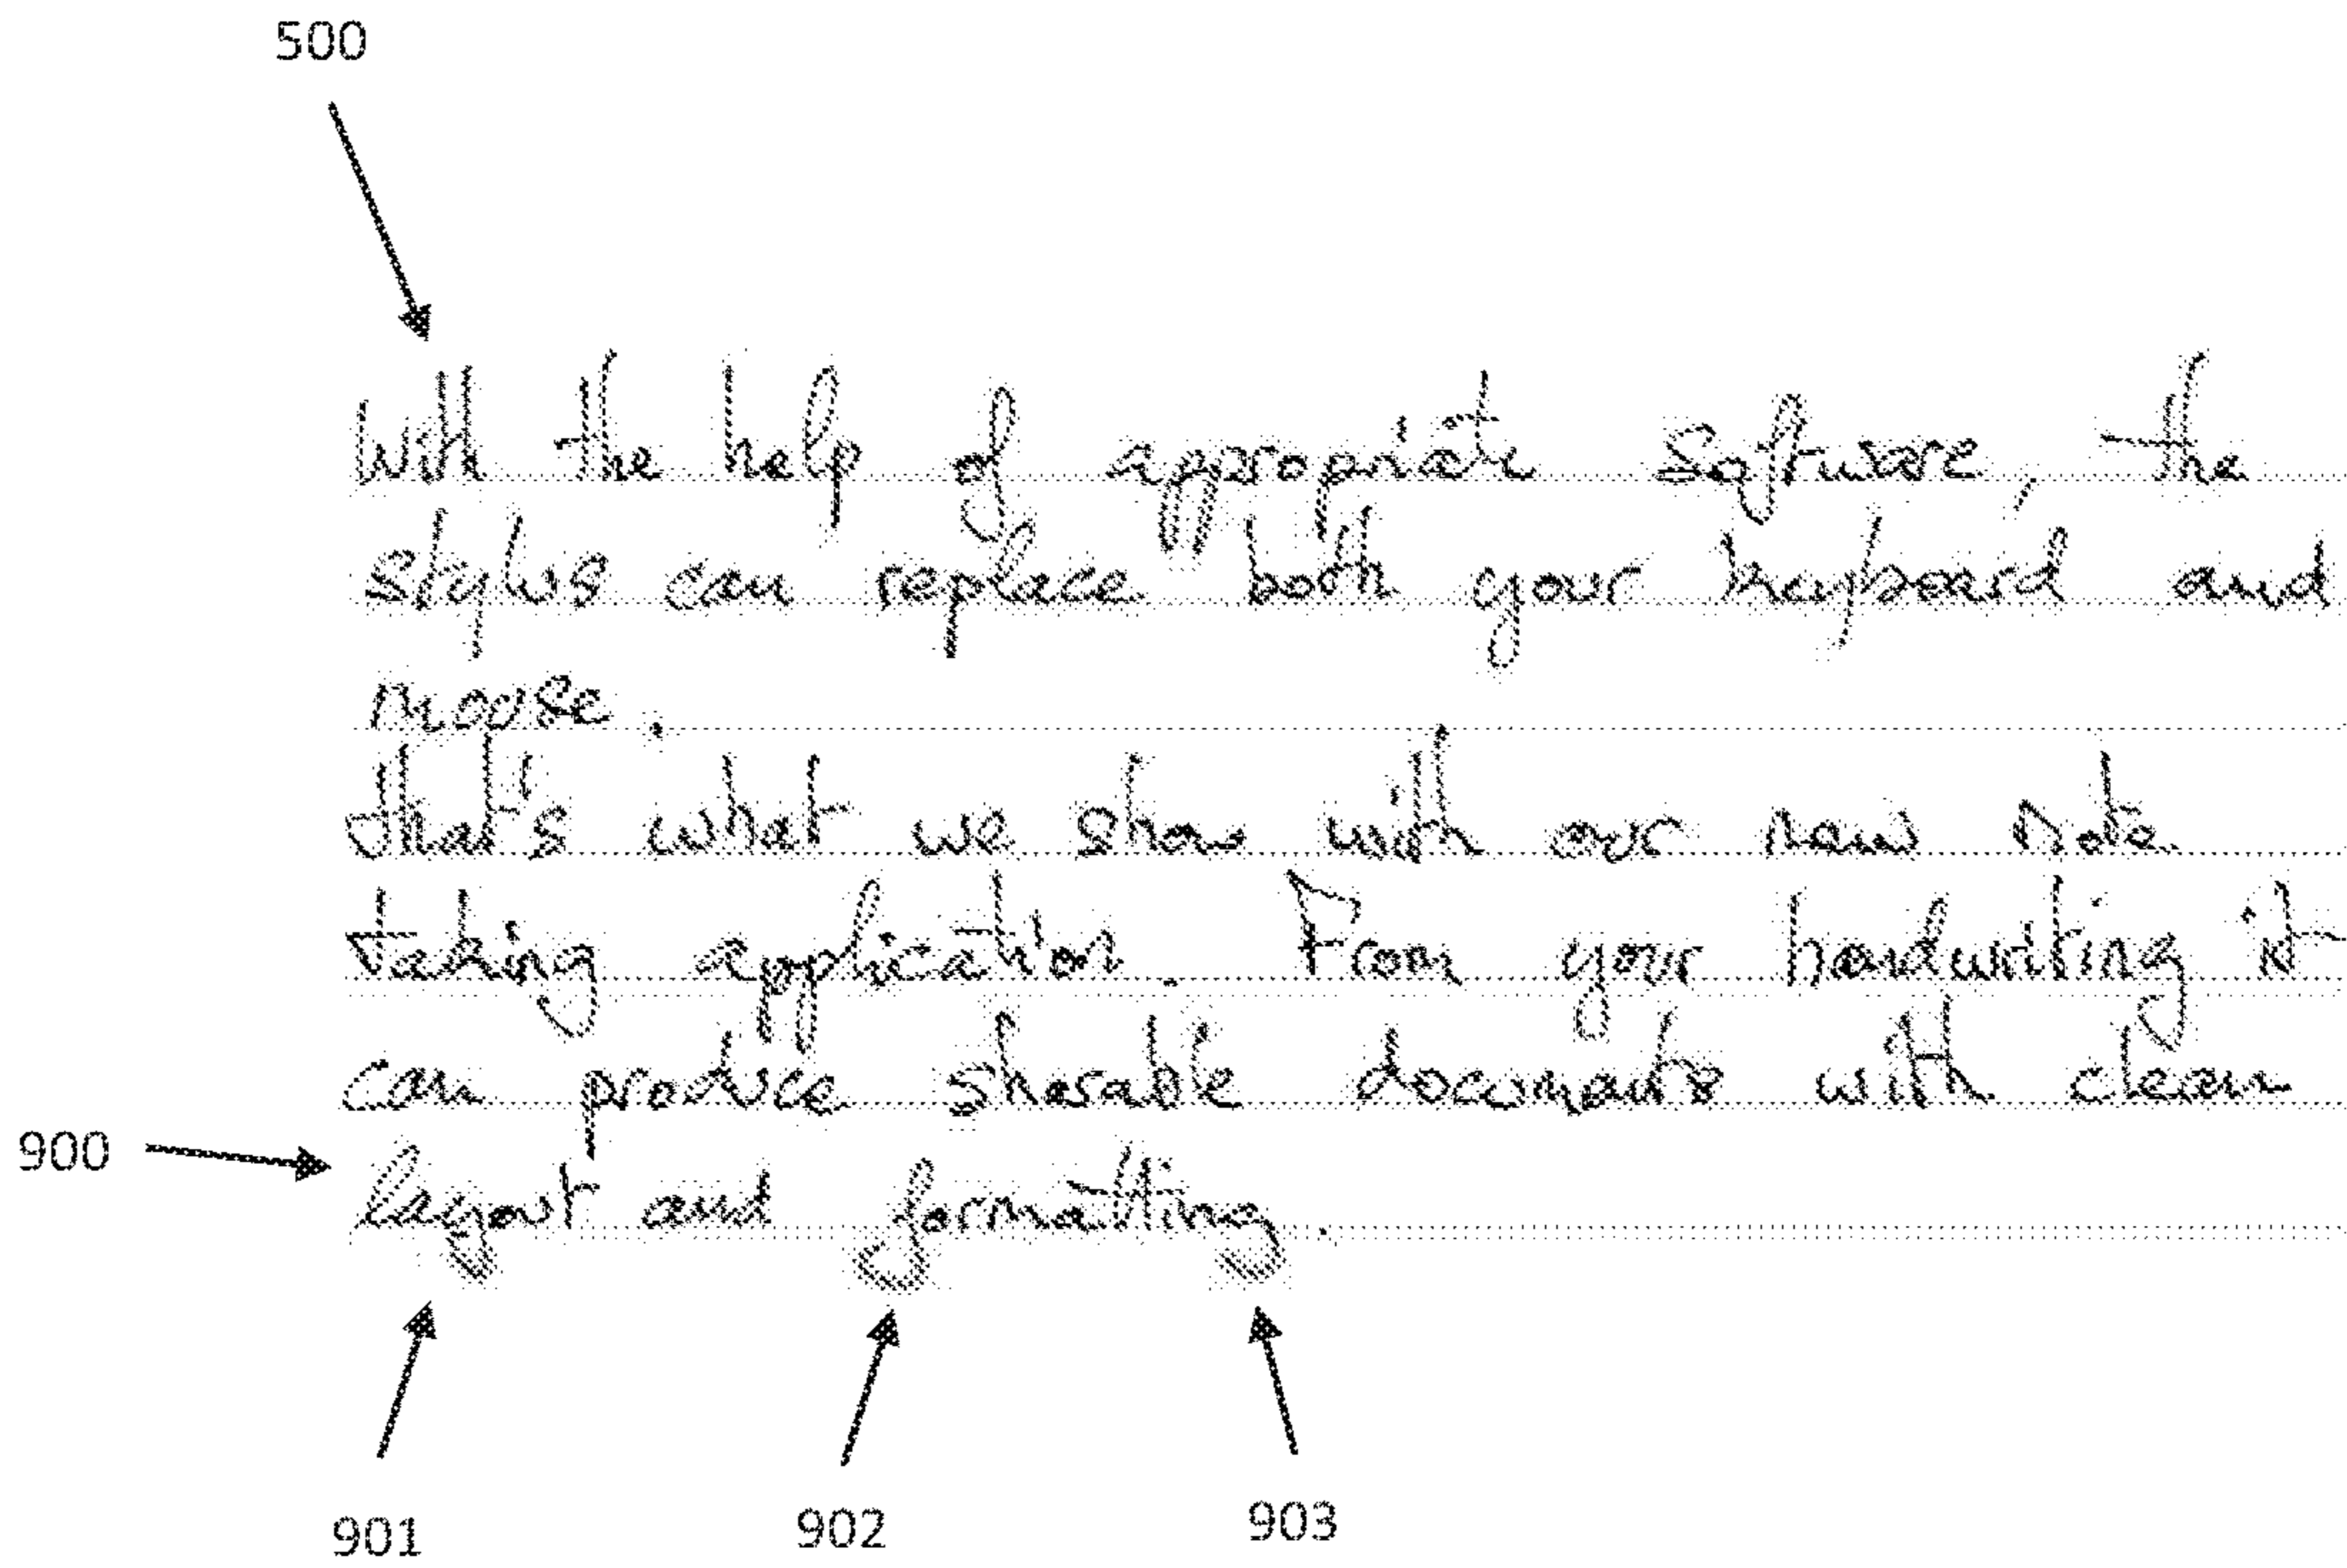 500
With the help of appropriate software, the
stylus can replace both your keyboard and
mouse.
that's what we show with our new note
taking application. From your handwriting it
can produce sharable documents with clean
900
layout and formatting.
901 902 903